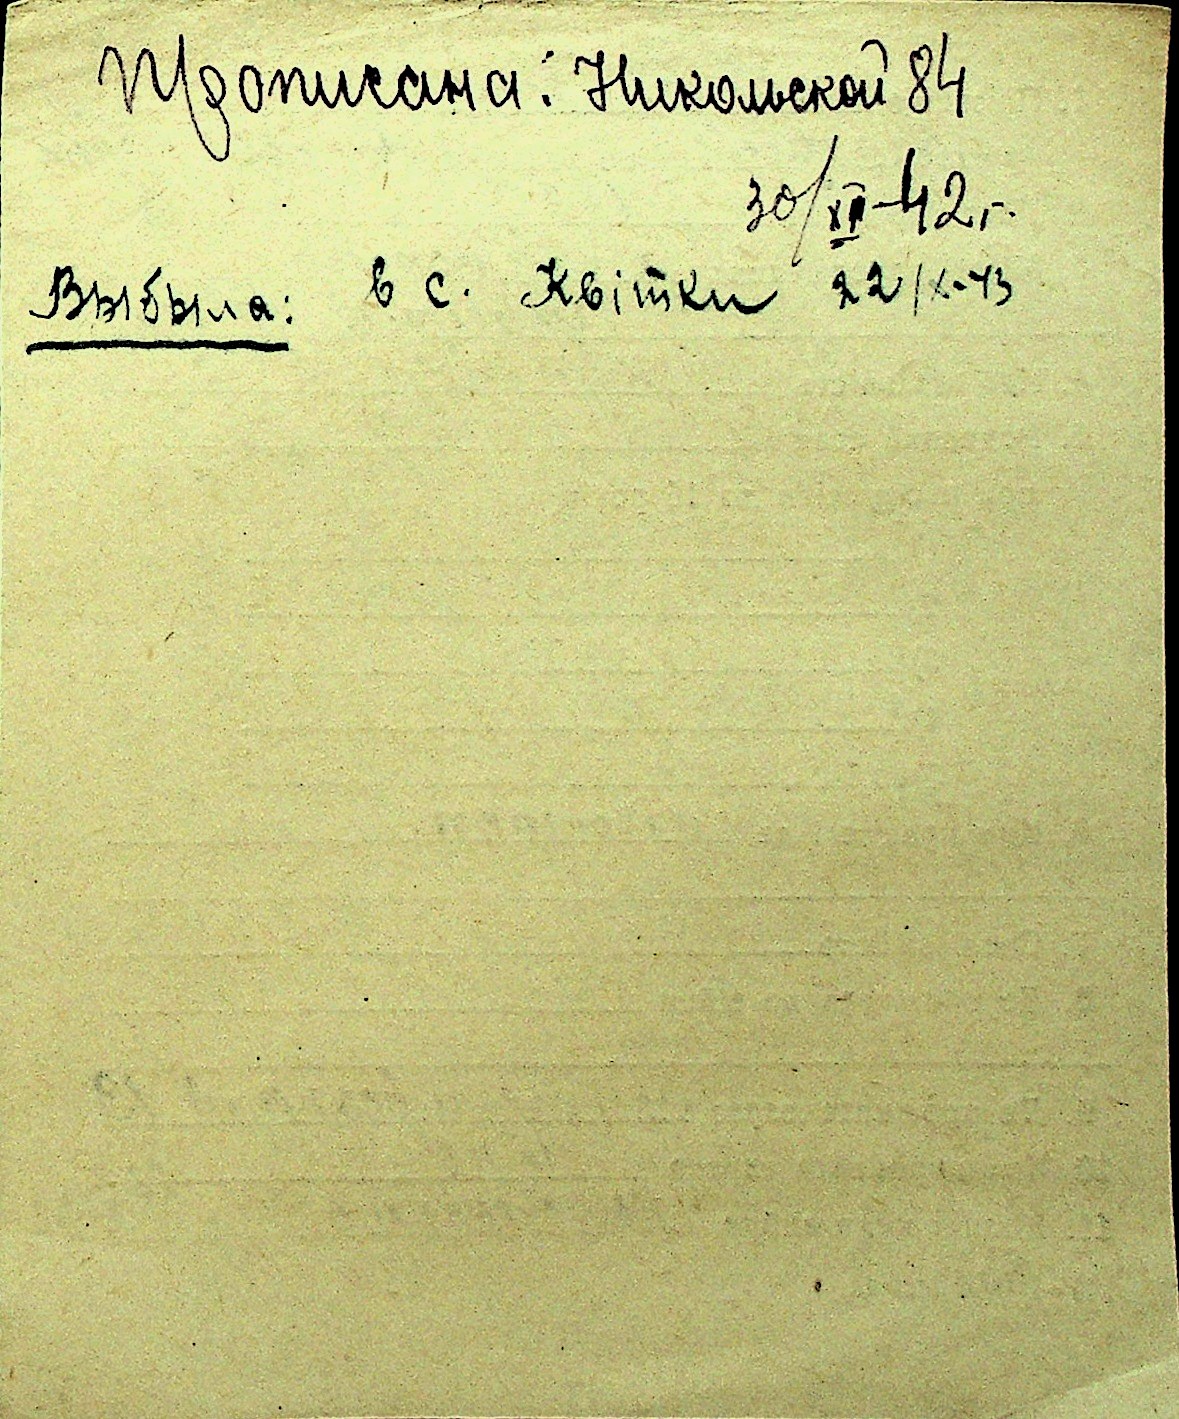 Прописана: Никольской 84
30/XII-42г.
Выбыла: в с. Квітки 22/X-43